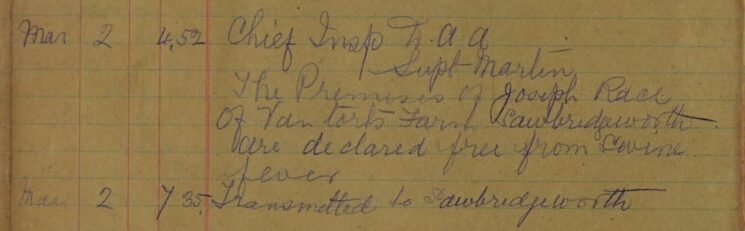 Mar 2 4.52 Chief Insp D.A.A
Supt Martin
The Premises of Joseph Race
Of Van torts Farm Sawbridgeworth
are declared free from Swine
fever
Mar 2 7 35 Transmitted to Sawbridgeworth